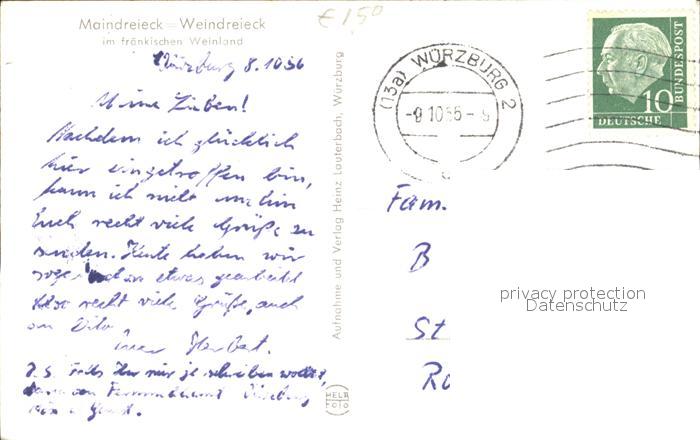 Maindreieck = Weindreieck
im fränkischen Weinland
€ 1,50
Würzburg 8.10.56
Meine Lieben!
Nachdem ich glücklich
hier eingetroffen bin,
kann ich nicht umhin
Euch recht viele Grüße zu
senden. Heute haben wir
sogar schon etwas gearbeitet
Also recht viele Grüße, auch
an
Euer Herbert.
P.S. Falls Ihr mir schreiben wolltet,
Würzburg
Aufnahme und Verlag Heinz Lauterbach, Würzburg
(13a) WÜRZBURG 2
-9.10.56-9
DEUTSCHE
BUNDESPOST
10
Fam.
B
St
privacy protection
Datenschutz